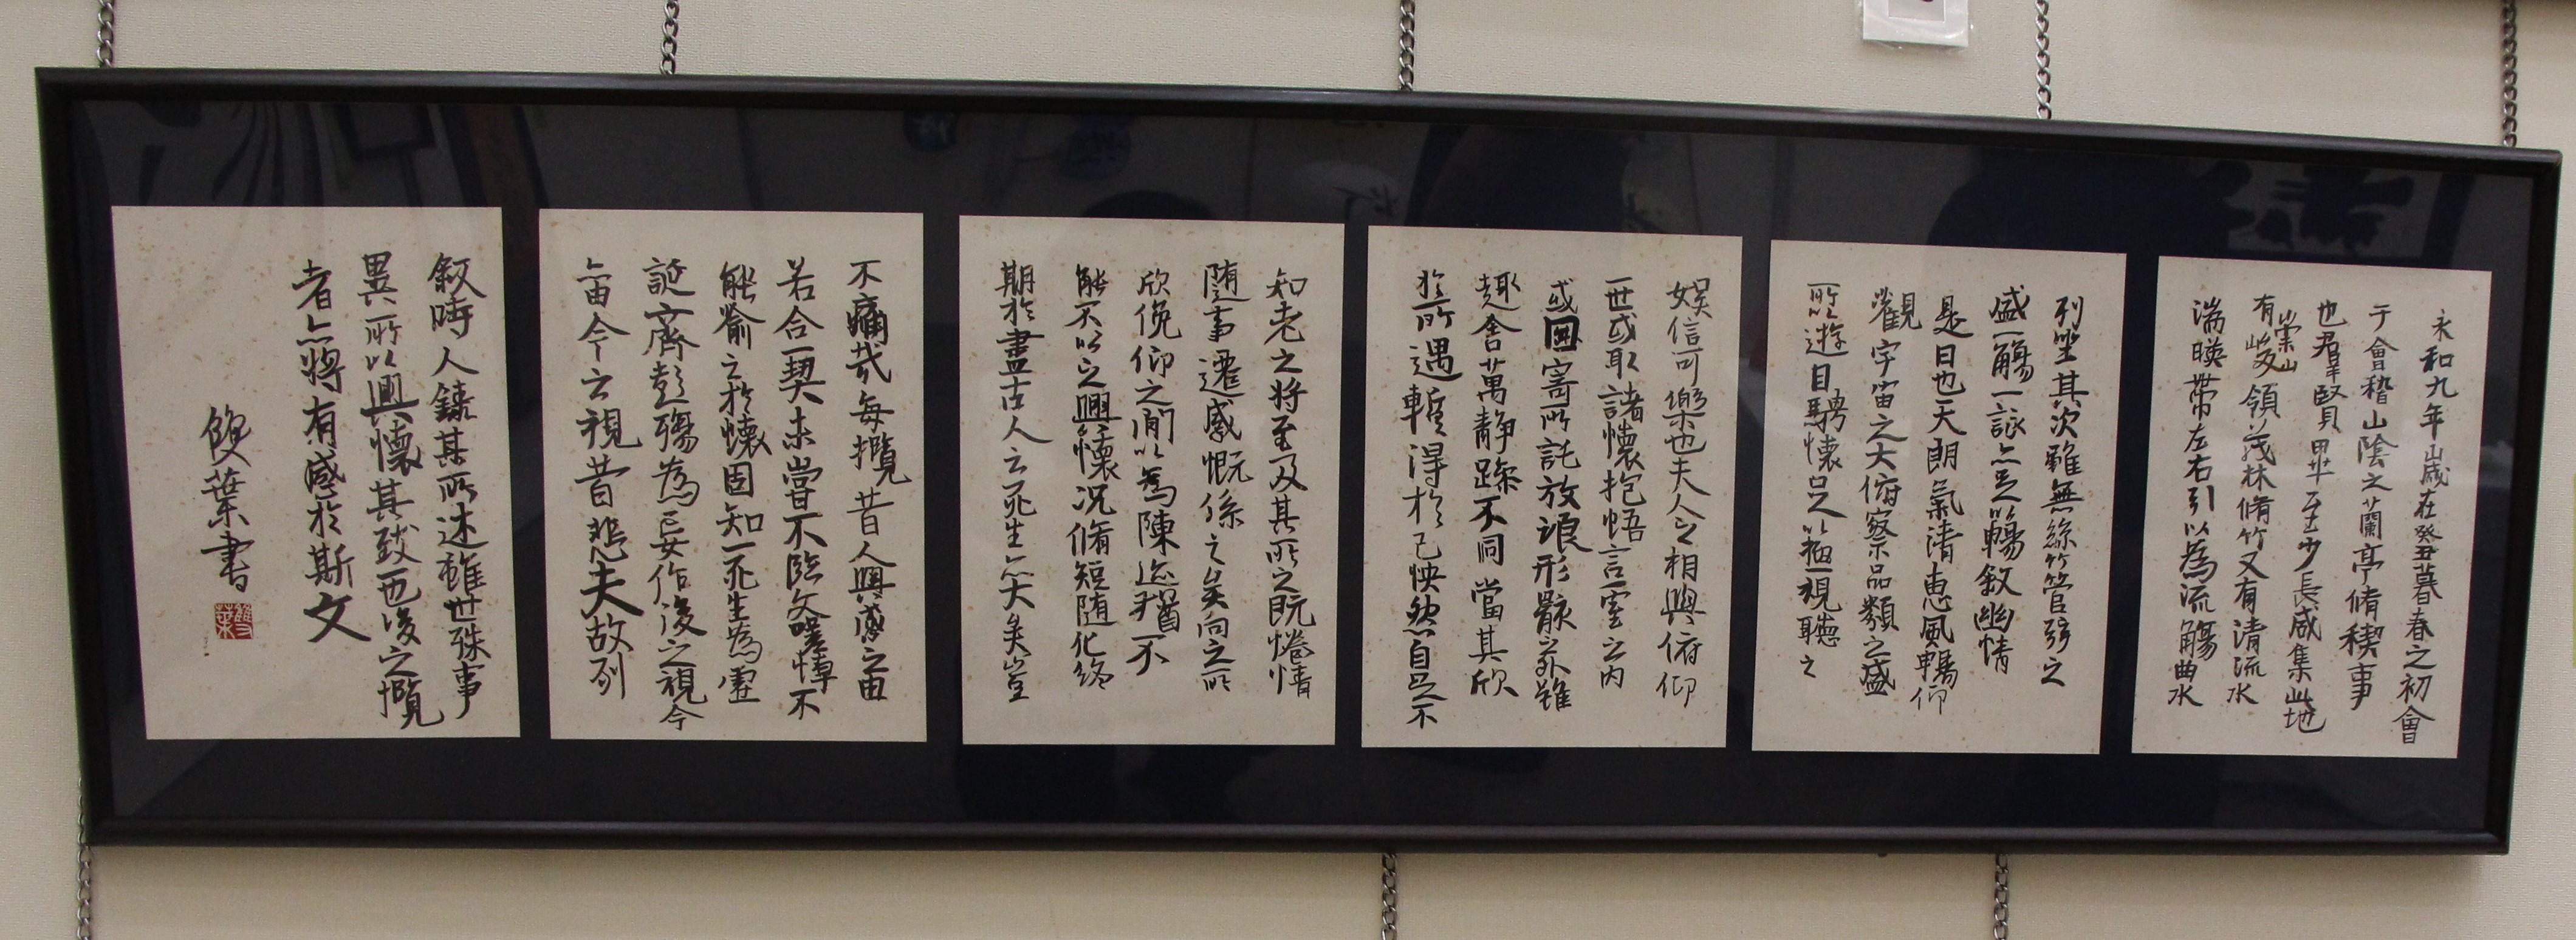 永和九年歲在癸丑暮春之初會
于會稽山陰之蘭亭脩稧事
也羣賢畢至少長咸集此地
有崇山峻領茂林脩竹又有清流
湍暎帶左右引以為流觴曲水
列坐其次雖無絲竹管弦之
盛一觴一詠亦足以暢敘幽情
是日也天朗氣清惠風暢仰
觀宇宙之大俯察品類之盛
所以遊目騁懷足以極視聽之
娛信可樂也夫人之相與俯仰
一世或取諸懷抱悟言一室之內
或因寄所託放浪形骸之外雖
趣舍萬静躁不同當其欣
於所遇暫得於己怏然自足不
知老之將至及其所之既惓情
随事遷感慨係之矣向之所
欣俛仰之閒以為陳迹猶不
能不以之興懷况脩短随化終
期於盡古人云死生亦大矣豈
不痛哉每攬昔人興感之由
若合一契未嘗不臨文嗟悼不
能喻之於懷固知一死生為虛
誕齊彭殤為妄作後之視今
亦由今之視昔悲夫故列
敘時人錄其所述雖世殊事
異所以興懷其致一也後之攬
者亦將有感於斯文
葉書